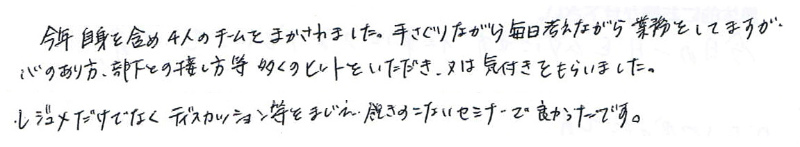 今年自身を含め4人のチームをまかされました。手さぐりながら毎日考えながら業務をしてますが、
心のあり方、部下との接し方等多くのヒントをいただき、又は気付きをもらいました。
レジュメだけでなくディスカッション等をまじえ、飽きのこないセミナーで良かったです。